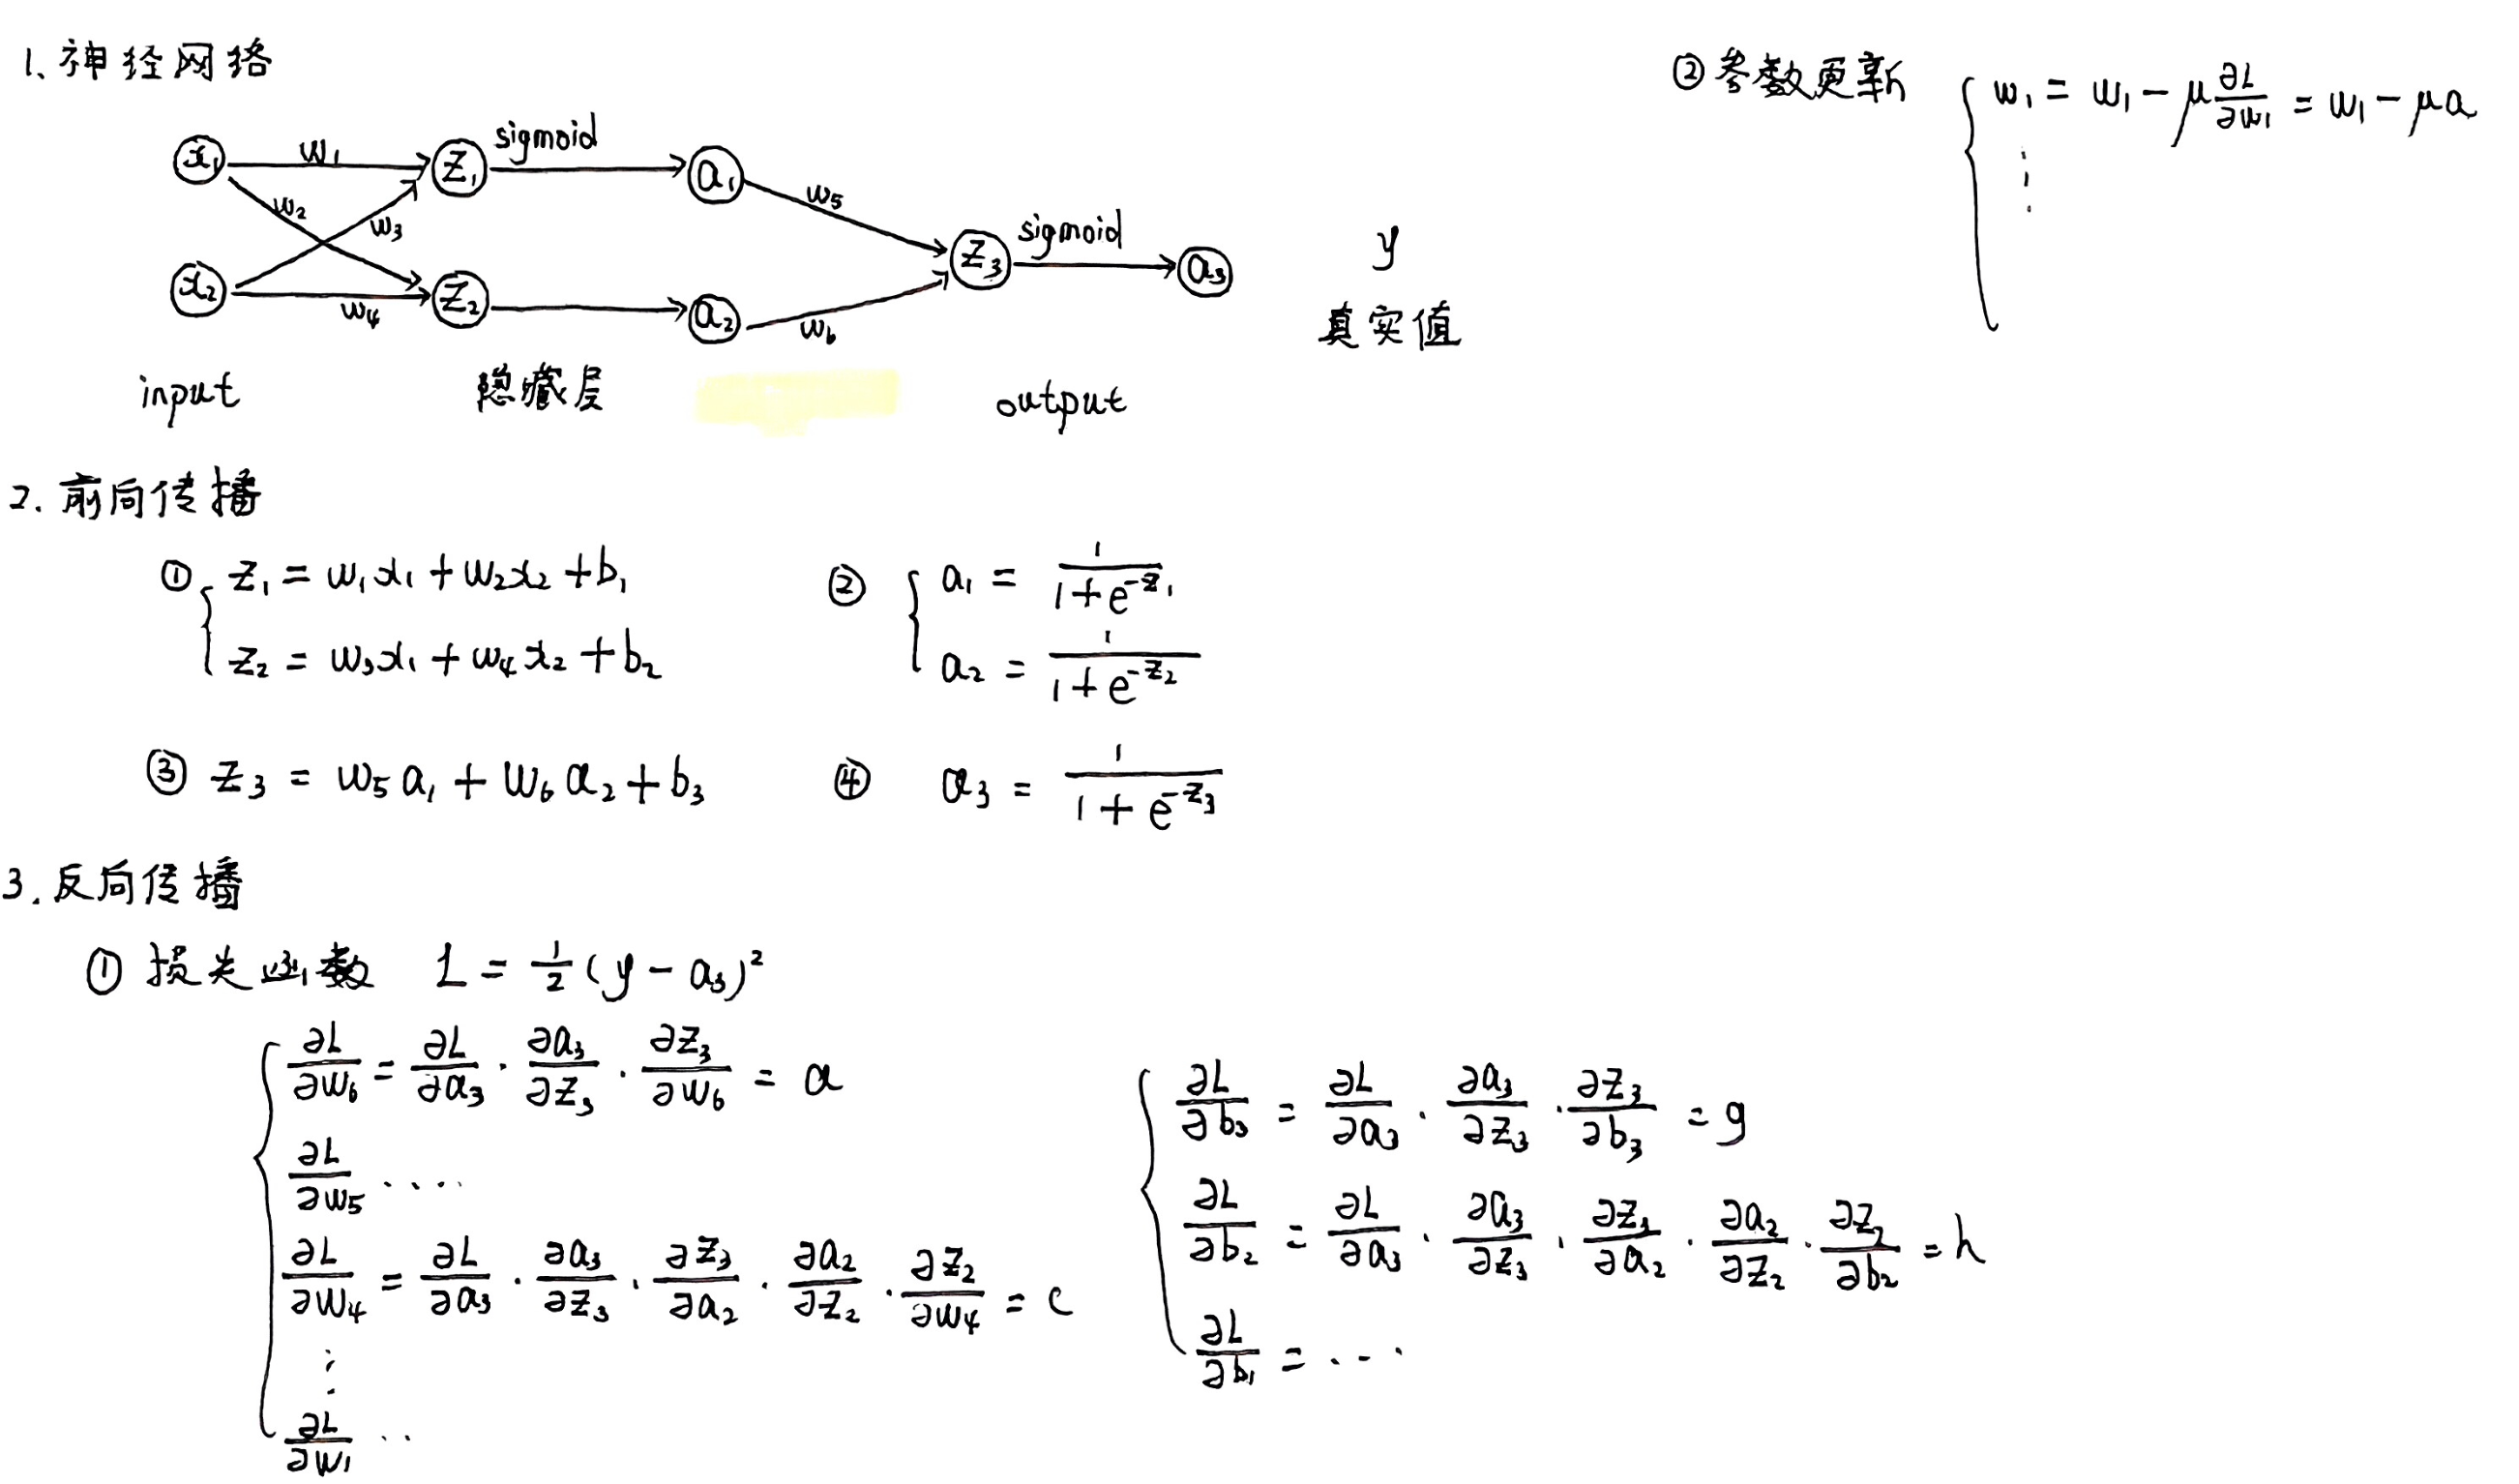 1、神经网络
x₁ w₁ z₁ sigmoid a₁ w₅
w₂ w₃ z₃ sigmoid a₃ y
x₂ w₄ z₂ a₂ w₆ 真实值
input 隐藏层 output
2. 前向传播
① z₁ = w₁x₁ + w₂x₂ + b₁
z₂ = w₃x₁ + w₄x₂ + b₂
② a₁ = 1/(1+e^(-z₁))
a₂ = 1/(1+e^(-z₂))
③ z₃ = w₅a₁ + w₆a₂ + b₃
④ a₃ = 1/(1+e^(-z₃))
3. 反向传播
① 损失函数 L = 1/2 (y - a₃)²
∂L/∂w₆ = ∂L/∂a₃ · ∂a₃/∂z₃ · ∂z₃/∂w₆ = a
∂L/∂w₅ ....
∂L/∂w₄ = ∂L/∂a₃ · ∂a₃/∂z₃ · ∂z₃/∂a₂ · ∂a₂/∂z₂ · ∂z₂/∂w₄ = c
⋮
∂L/∂w₁ ..
∂L/∂b₃ = ∂L/∂a₃ · ∂a₃/∂z₃ · ∂z₃/∂b₃ = g
∂L/∂b₂ = ∂L/∂a₃ · ∂a₃/∂z₃ · ∂z₃/∂a₂ · ∂a₂/∂z₂ · ∂z₂/∂b₂ = h
∂L/∂b₁ = ...
② 参数更新 w₁ = w₁ - μ ∂L/∂w₁ = w₁ - μa
⋮